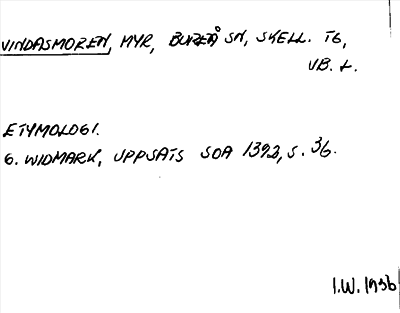 VINDASMOREN, MYR, BUREÅ SN, SKELL. TG,
VB. L.
ETYMOLOGI.
G. WIDMARK, UPPSATS SOA 1393, S. 36.
I.W. 1956